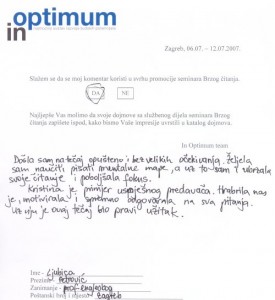 in optimum
Zagreb, 06.07. – 12.07.2007.
Slažem se da se moj komentar koristi u svrhu promocije seminara Brzog čitanja.
DA NE
Najljepše Vas molimo da svoje dojmove sa službenog dijela seminara Brzog
čitanja zapišete ispod, kako bismo Vaše impresije uvrstili u katalog dojmova.
In Optimum team
Došla sam na tečaj opušteno i bez velikih očekivanja. Željela
sam naučiti pisati mentalne mape, a uz to sam i ubrzala
svoje čitanje i poboljšala fokus.
Kristina je primjer uspješnog predavača. Hrabrila nas
je, motivirala i spremno odgovarala na sva pitanja.
Uz nju je ovaj tečaj bio pravi užitak.
Ime - Ljubica
Prezime - Petrović
Zanimanje - prof. engleskog
Poštanski broj i mjesto - Zagreb